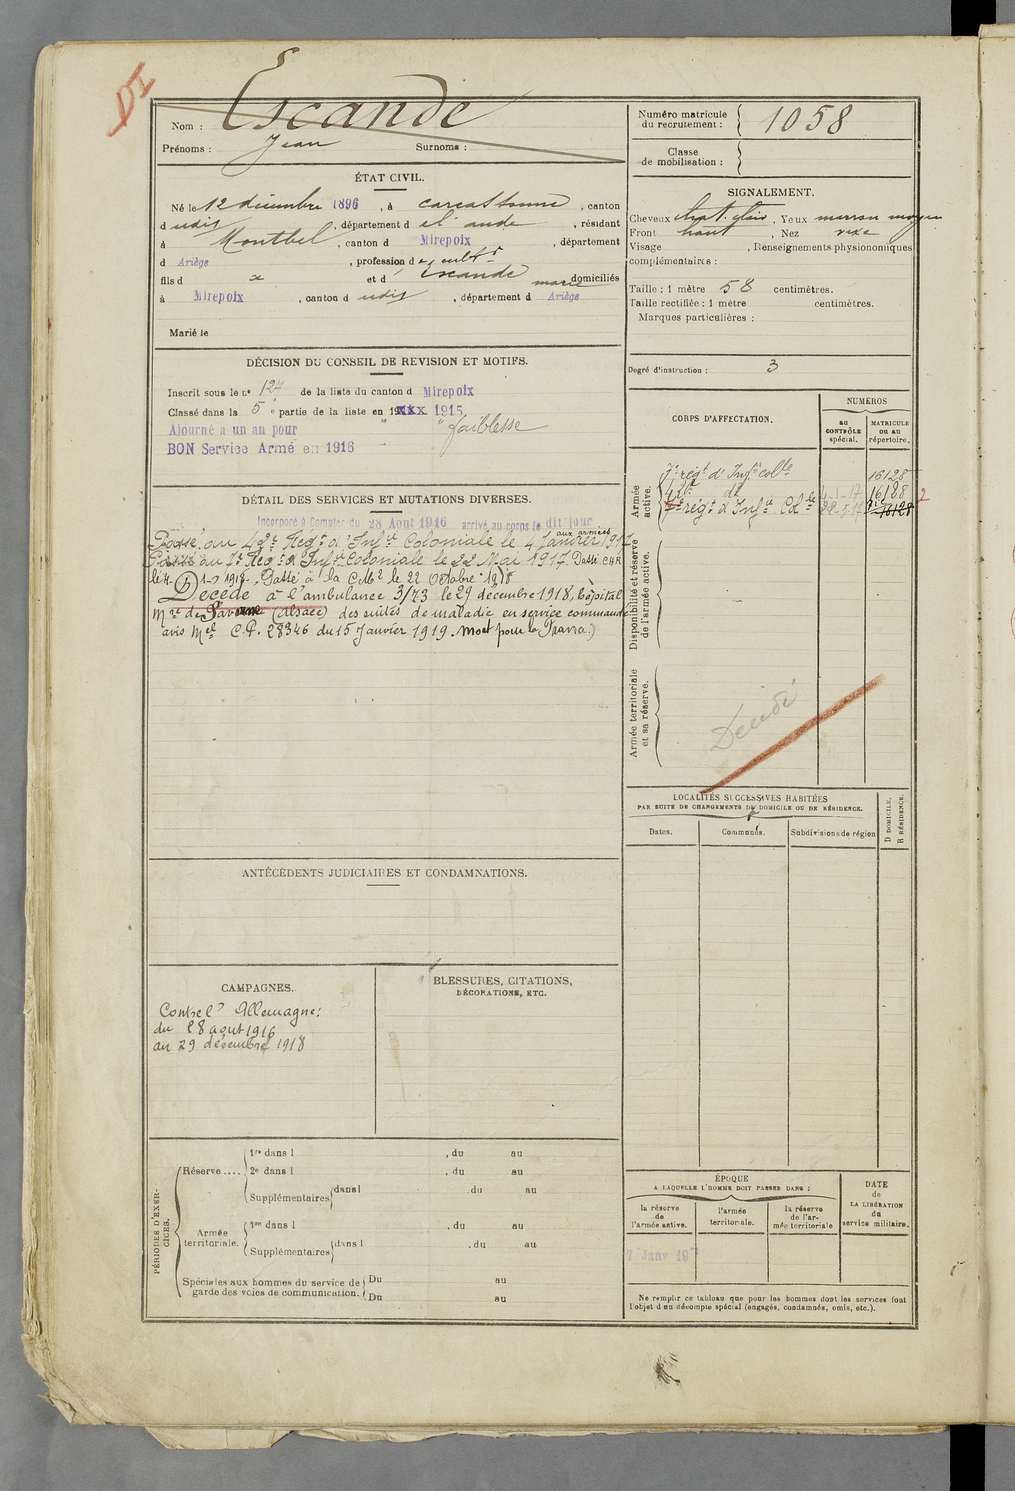 DI
Nom : Escande
Prénoms : Jean Surnoms :
Numéro matricule du recrutement : 1058
Classe de mobilisation :
ÉTAT CIVIL.
Né le 12 décembre 1896, à Carcassonne, canton
d udit, département d el aude, résidant
à Montbel, canton d Mirepoix, département
d Ariège, profession d
fils d x et d' Escande marie domiciliés
à Mirepoix, canton d udit, département d Ariège
Marié le
SIGNALEMENT.
Cheveux chat. clair, Yeux marron moyen
Front haut, Nez
Visage , Renseignements physionomiques
complémentaires :
Taille : 1 mètre 58 centimètres.
Taille rectifiée : 1 mètre centimètres.
Marques particulières :
Degré d'instruction : 3
DÉCISION DU CONSEIL DE REVISION ET MOTIFS.
Inscrit sous le n° 127 de la liste du canton d Mirepoix
Classé dans la 5e partie de la liste en 1915
Ajourné a un an pour " " faiblesse
BON Service Armé en 1916
DÉTAIL DES SERVICES ET MUTATIONS DIVERSES.
Incorporé à Compter du 28 Aout 1916 arrivé au corps le dit jour
aux armées
Passé au 42e Reg.t d'Inf.ie Coloniale le 4 Janvier 1917
Passé au 7e Reg.t d'Inf.ie Coloniale le 22 Mai 1917. Passé C.H.R
1918. Passé à la C.M2 le 22 Octobre 1918
Décédé à l'ambulance 3/73 le 29 décembre 1918, hôpital
M.re de Saverne (alsace) des suites de maladie en service commandé
avis M.el C.P. 28346 du 15 Janvier 1919. Mort pour la France.)
CORPS D'AFFECTATION.
NUMÉROS
au CONTRÔLE spécial.
MATRICULE ou au répertoire.
Armée active.
7e rég.t d'Inf.ie Col.le 16128
7e rég.t d'Inf.ie Col.le 16128
Disponibilité et réserve de l'armée active.
Armée territoriale et sa réserve.
Décédé
LOCALITÉS SUCCESSIVES HABITÉES
PAR SUITE DE CHANGEMENTS DE DOMICILE OU DE RÉSIDENCE.
Dates. Communes. Subdivisions de région
D DOMICILE.
R RÉSIDENCE.
ANTÉCÉDENTS JUDICIAIRES ET CONDAMNATIONS.
CAMPAGNES.
Contre l'Allemagne:
du 28 aout 1916
au 29 décembre 1918
BLESSURES, CITATIONS,
DÉCORATIONS, ETC.
PÉRIODES D'EXERCICES.
Réserve ....
1re dans l , du au
2e dans l , du au
Supplémentaires dans l du au
Armée territoriale.
1re dans l , du au
Supplémentaires dans l , du au
Spéciales aux hommes du service de garde des voies de communication.
Du au
Du au
ÉPOQUE
A LAQUELLE L'HOMME DOIT PASSER DANS :
la réserve de l'armée active.
l'armée territoriale.
la réserve de l'armée territoriale
DATE
de
LA LIBÉRATION
du
service militaire.
Ne remplir ce tableau que pour les hommes dont les services font
l'objet d'un décompte spécial (engagés, condamnés, omis, etc.).